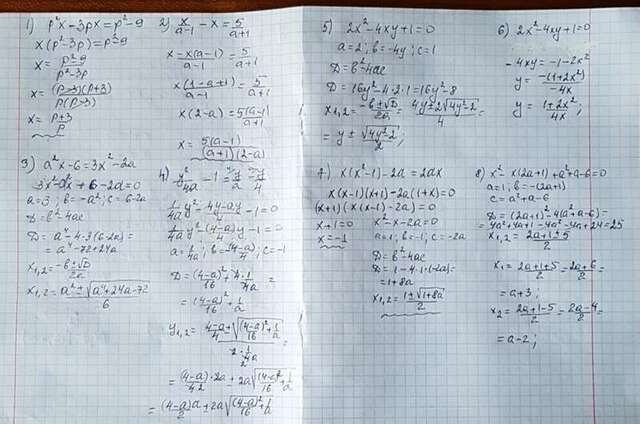 1) p²x - 3px = p² - 9
x(p² - 3p) = p² - 9
x = (p² - 9)/(p² - 3p)
x = (p-3)(p+3)/p(p-3)
x = (p+3)/p
2) x/(a-1) - x = 5/(a+1)
(x - x(a-1))/(a-1) = 5/(a+1)
x(1-a+1)/(a-1) = 5/(a+1)
x(2-a) = 5(a-1)/(a+1)
x = 5(a-1)/(a+1)(2-a)
3) a²x - 6 = 3x² - 2a
3x² - a²x + 6 - 2a = 0
a = 3; b = -a²; c = 6-2a
D = b² - 4ac
D = a⁴ - 4·3(6-2a) =
= a⁴ - 72 + 24a
x1,2 = (-b ± √D)/2a
x1,2 = (a² ± √(a⁴ + 24a - 72))/6
4) y²/4a - 1 = y/a - y/4
1/4a y² - (4y - ay)/4a - 1 = 0
D = (4-a)²/16 + 4·1/4a =
= (4-a)²/16 + 1/a
= (4-a)·2a/4 ± 2a√((4-a)²/16 + 1/a)
= (4-a)a/2 ± 2a√((4-a)²/16 + 1/a)
5) 2x² - 4xy + 1 = 0
a = 2; b = -4y; c = 1
D = b² - 4ac
D = 16y² - 4·2·1 = 16y² - 8
x1,2 = (-b ± √D)/2a = (4y ± 2√(4y² - 2))/4 =
= y ± √(4y² - 2)/2;
6) 2x² - 4xy + 1 = 0
-4xy = -1 - 2x²
y = -(1+2x²)/-4x
y = (1+2x²)/4x;
7) x(x² - 1) - 2a = 2ax
x(x-1)(x+1) - 2a(1+x) = 0
(x+1)(x(x-1) - 2a) = 0
x + 1 = 0
x = -1
x² - x - 2a = 0
a = 1; b = -1; c = -2a
D = b² - 4ac
D = 1 - 4·1·(-2a) =
= 1 + 8a
x1,2 = (1 ± √(1+8a))/2
8) x² - x(2a+1) + a² + a - 6 = 0
a = 1; b = -(2a+1)
c = a² + a - 6
D = (2a+1)² - 4(a² + a - 6) =
= 4a² + 4a + 1 - 4a² - 4a + 24 = 25
x1,2 = (2a+1 ± 5)/2
x1 = (2a+1+5)/2 = (2a+6)/2 =
= a + 3;
x2 = (2a+1-5)/2 = (2a-4)/2 =
= a - 2;